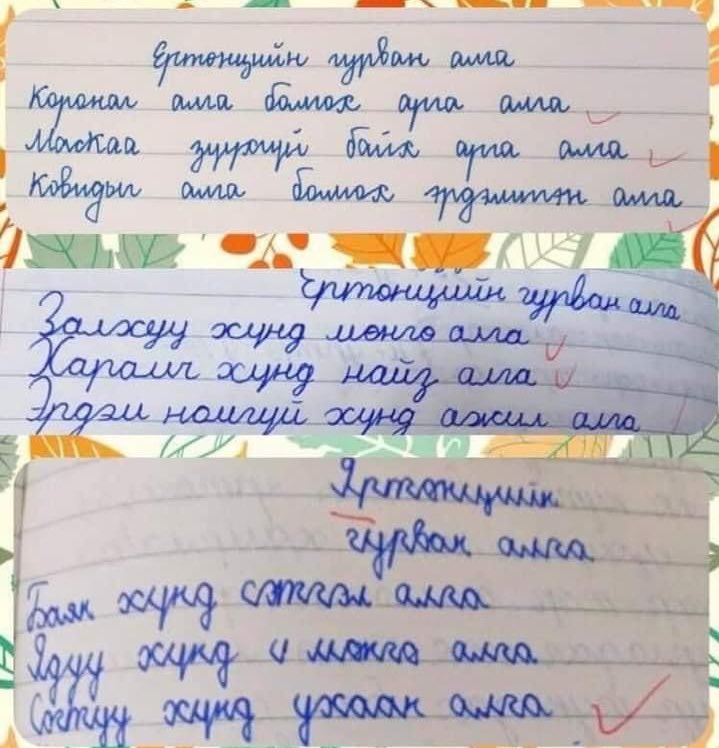 Ертөнцийн гурван алга
Коронаг алга болгох арга алга
Маскаа зүүхгүй байх арга алга
Ковидыг алга болгох эрдэмтэн алга
Ертөнцийн гурван алга
Залхуу хүнд мөнгө алга
Харамч хүнд найз алга
Эрдэм номгүй хүнд ажил алга
Яртөнцийн
гурван алга
Баян хүнд сэтгэл алга
Ядуу хүнд мөнгө алга
Согтуу хүнд ухаан алга